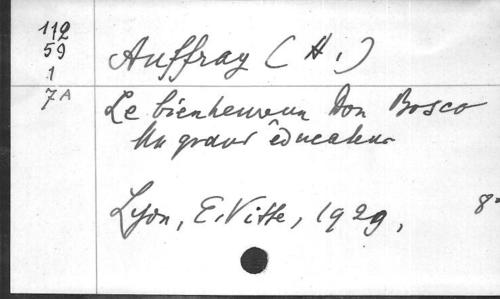 112
59
1
7A
Auffray (H.)
Le bienheureux Don Bosco
Un grand éducateur
Lyon, E. Vitte, 1929,
8°